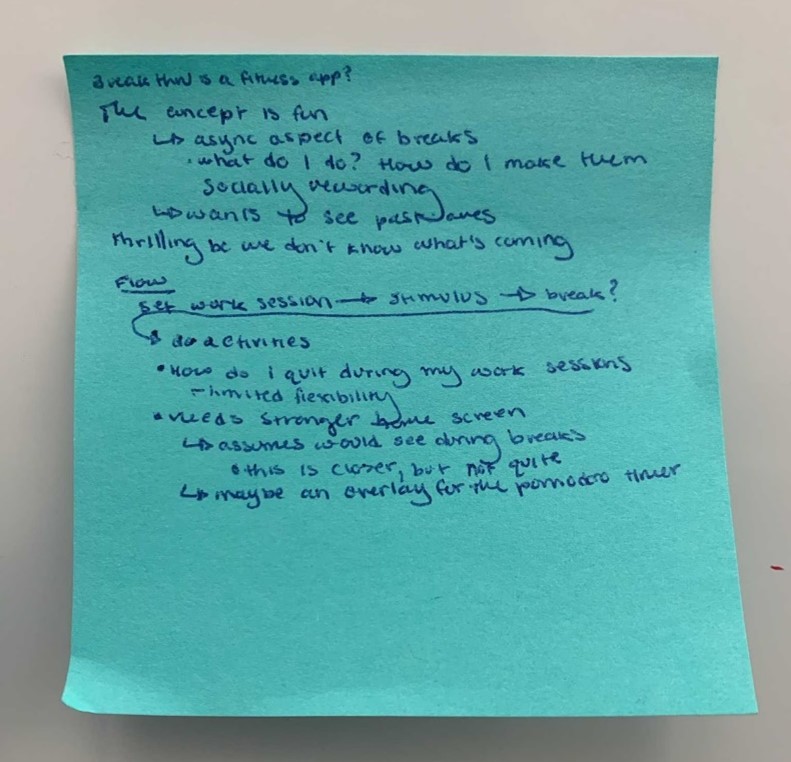 Break thru is a fitness app?
The concept is fun
↳ async aspect of breaks
· what do I do? How do I make them
socially rewarding
↳ wants to see past
thrilling bc we don't know what's coming
Flow
set work session → stimulus → break?
↳ do activities
• How do I quit during my work sessions
- limited flexibility
• needs stronger home screen
↳ assumes would see during breaks
• this is closer, but not quite
↳ maybe an overlay for the pomodoro timer